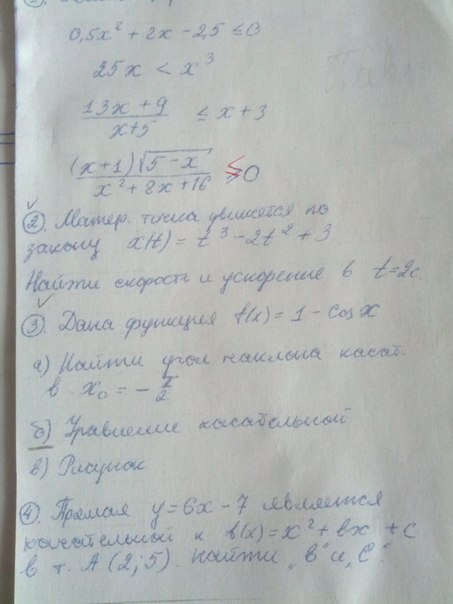 0,5x² + 2x - 2,5 ≤ 0
25x < x³
(13x + 9)/(x+5) ≤ x + 3
((x+1)√(5-x))/(x² + 8x + 16) ≤ 0
②. Матер. точка движется по
закону x(t) = t³ - 2t² + 3
Найти скорость и ускорение в t=2с.
③. Дана функция f(x) = 1 - cos x
а) Найти угол наклона касат.
в x₀ = - π/2
б) Уравнение касательной
в) Рисунок
④. Прямая y = 6x - 7 является
касательной к f(x) = x² + вx + c
в т. А (2; 5). Найти „в" и „С".